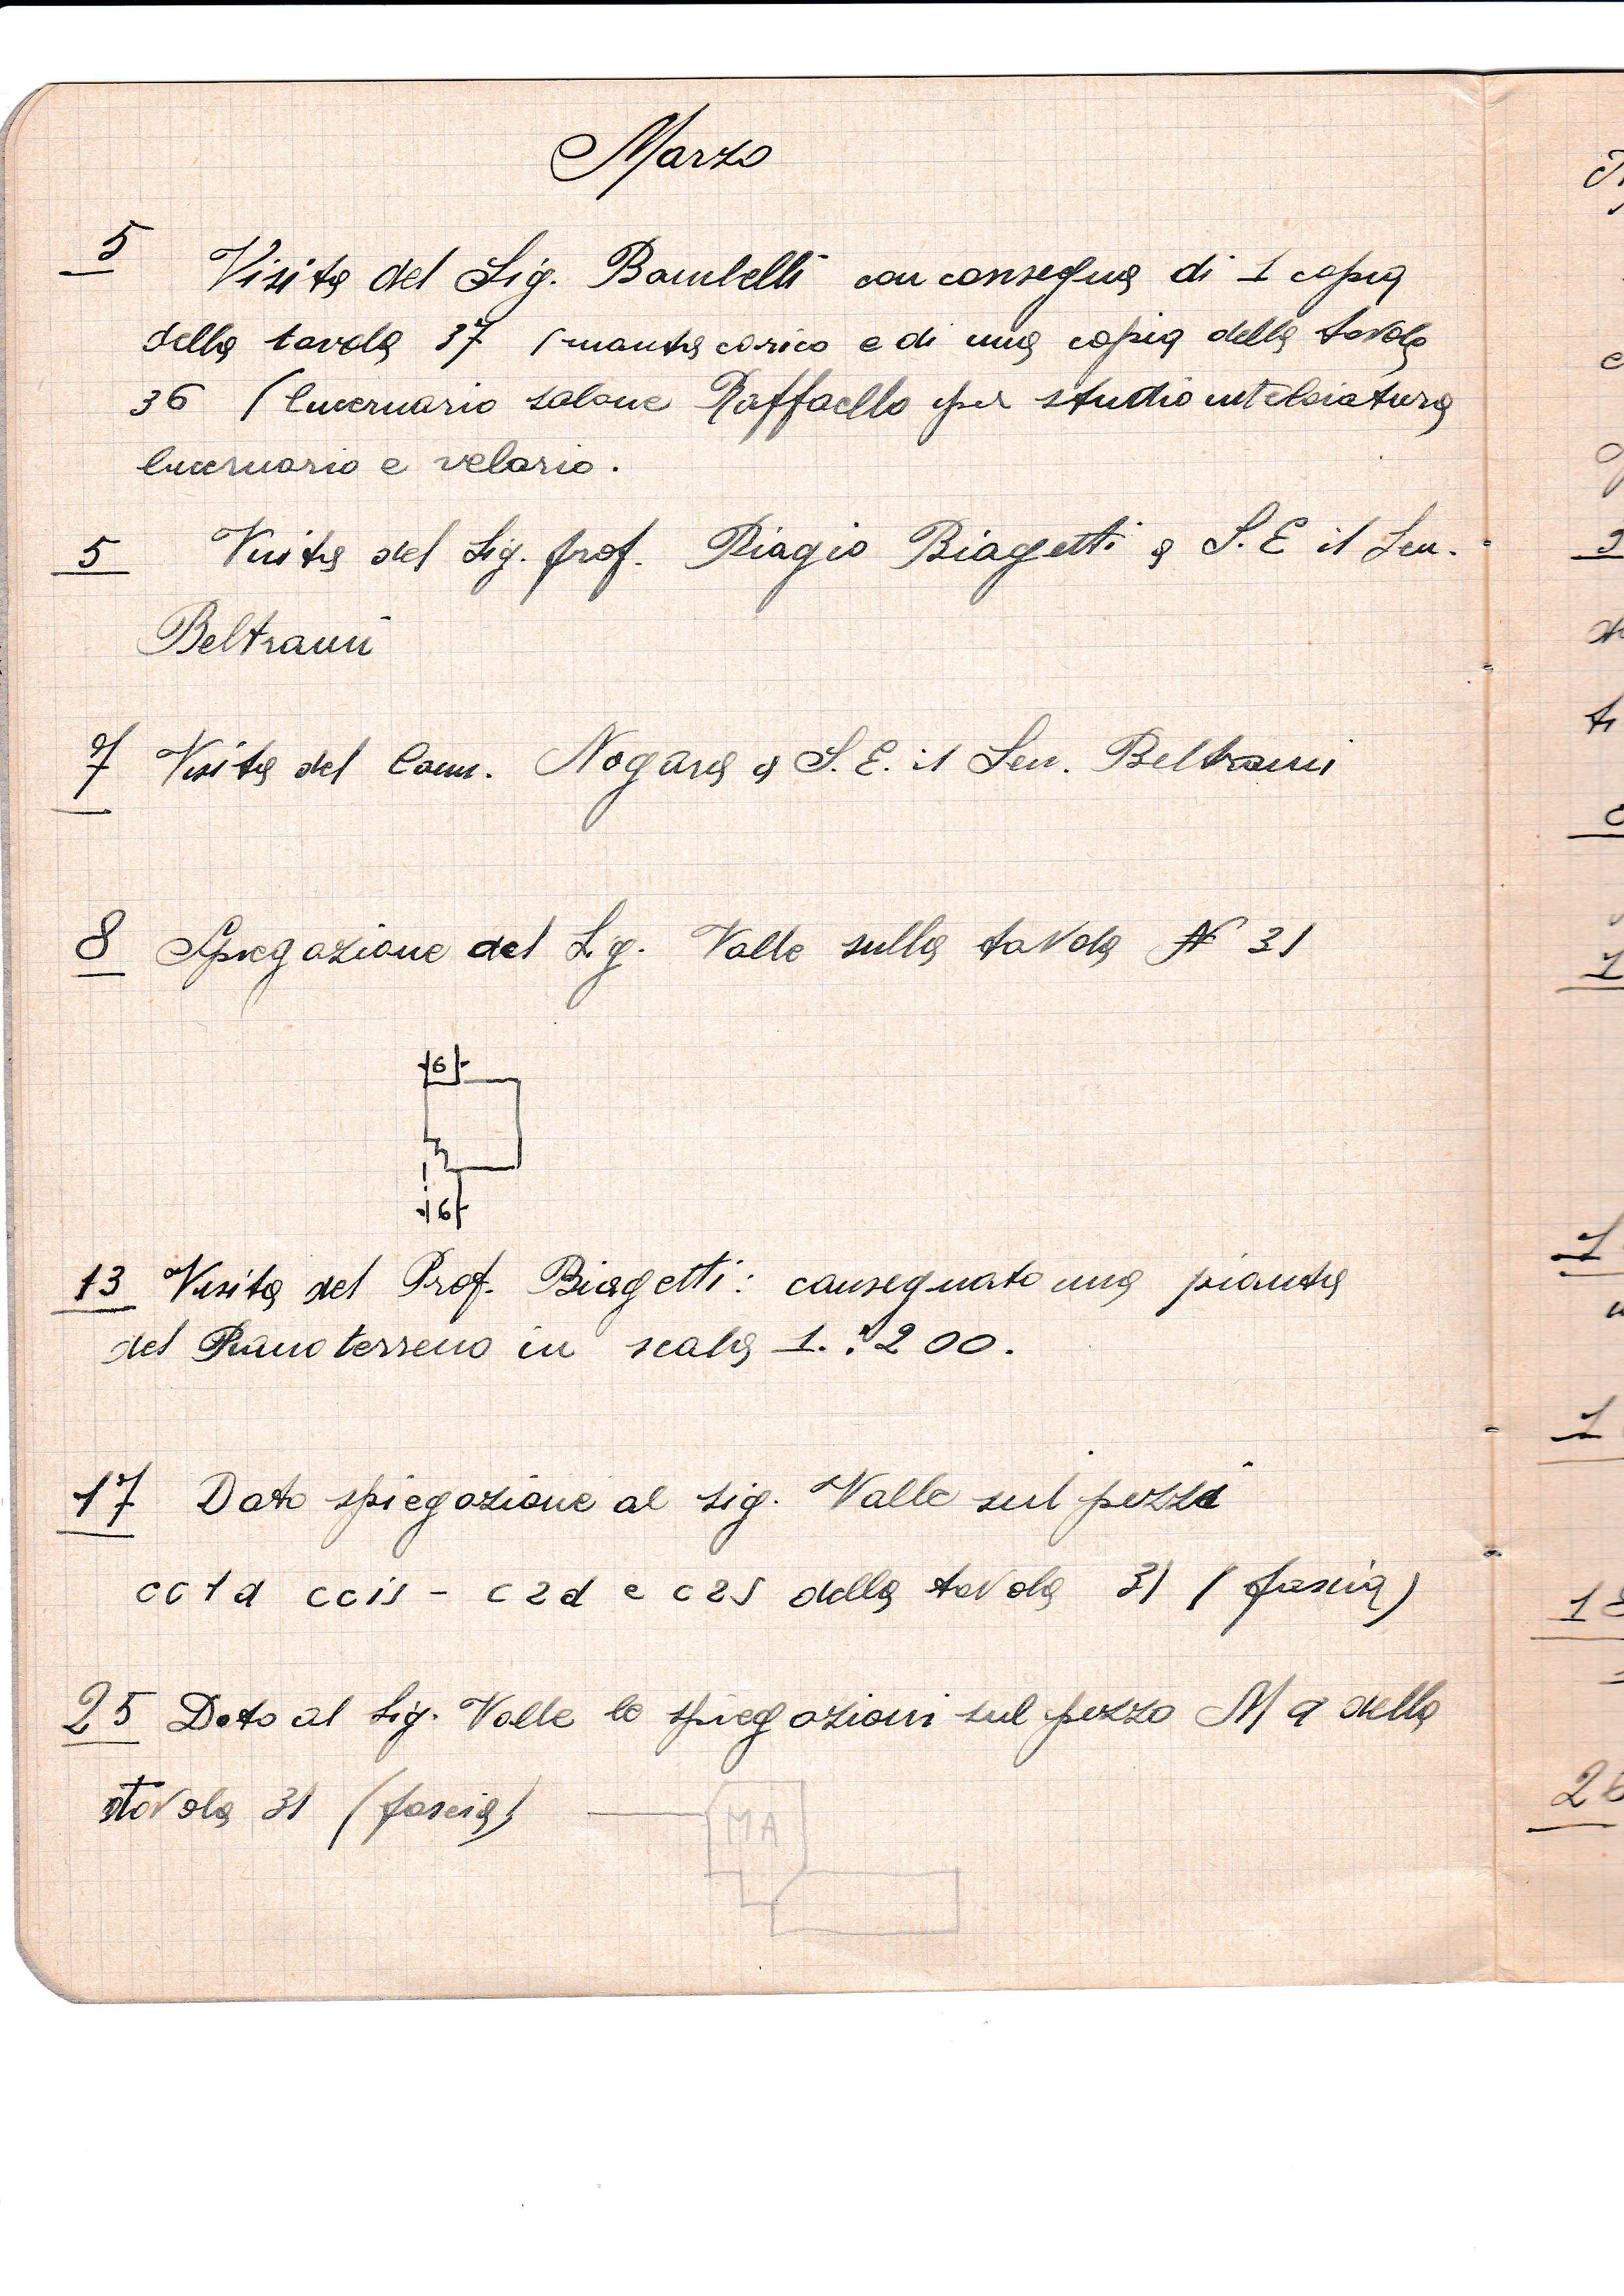 Marzo
5 Visita del Sig. Bombelli con consegna di 1 copia
della tavola 37 (montacarico e di una copia della tavola
36 (lucernario salone Raffaello per studio intelaiatura
lucernario e velario.
5 Visita del Sig. prof. Biagio Biagetti a S.E il Sen.
Beltrami
7 Visita del Com. Nogara a S.E. il Sen. Beltrami
8 Spiegazione del Sig. Valle sulla tavola N 31
6
16
13 Visita del Prof. Biagetti: consegnato una pianta
del Piano terreno in scala 1:200.
17 Dato spiegazione al sig. Valle sul pezzi
cc1d cc1s - c2d e c2s della tavola 31 (fascia)
25 Dato al Sig. Valle le spiegazioni sul pezzo Ma della
tavola 31 (fascia)
MA